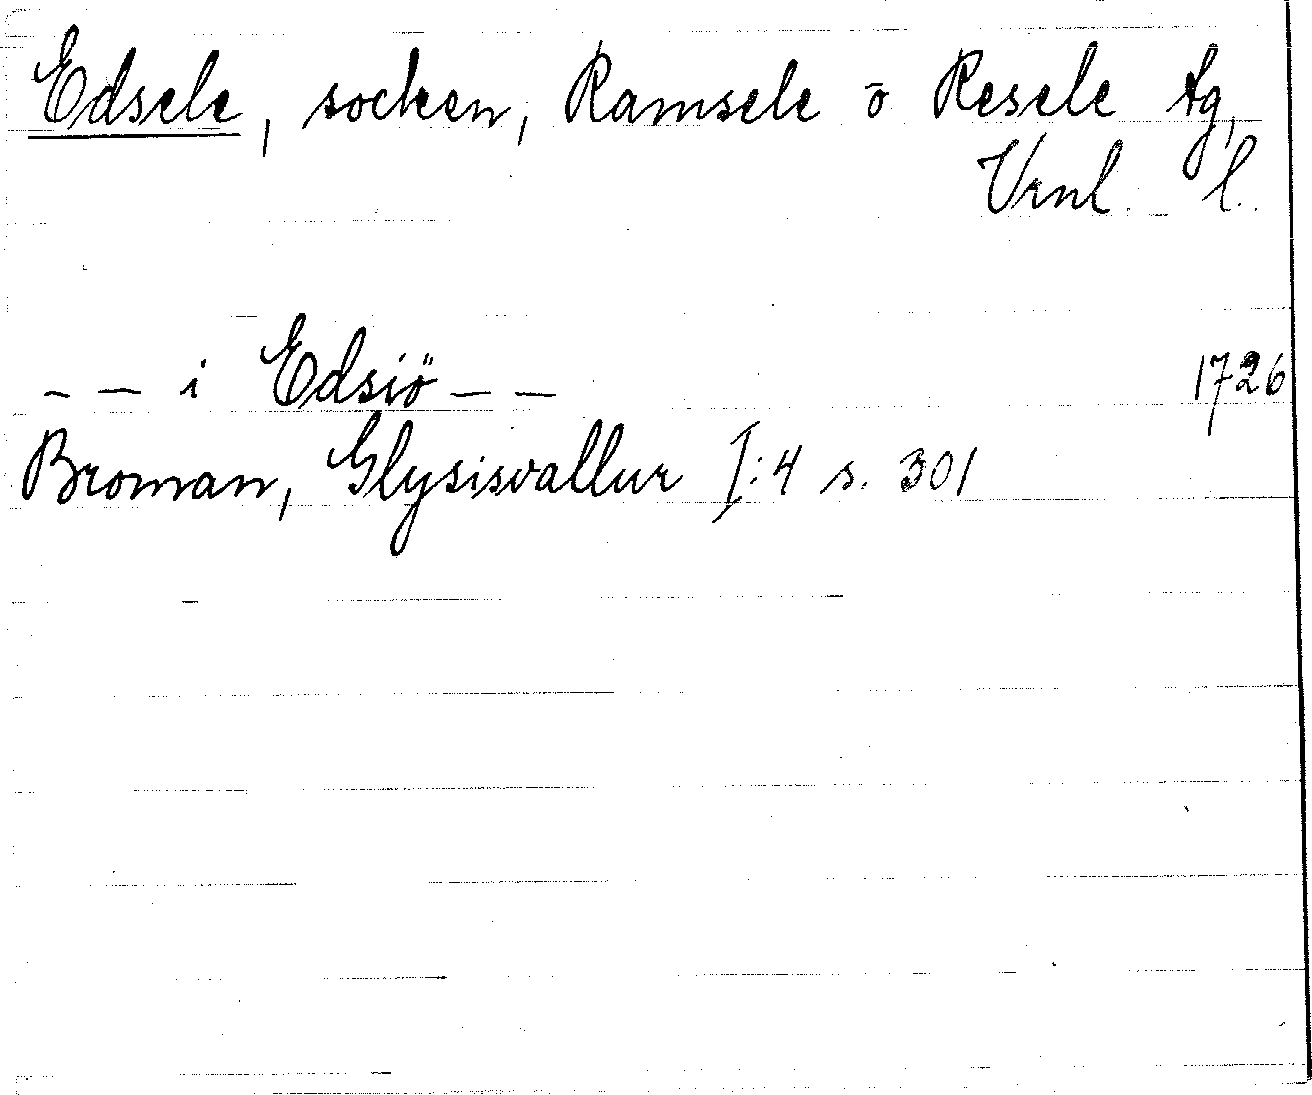 Edsele, socken, Ramsele o Resele tg,
Vrnl. l.
- - i Edsiö - - 1726
Broman, Glysisvallur I:4 s. 301